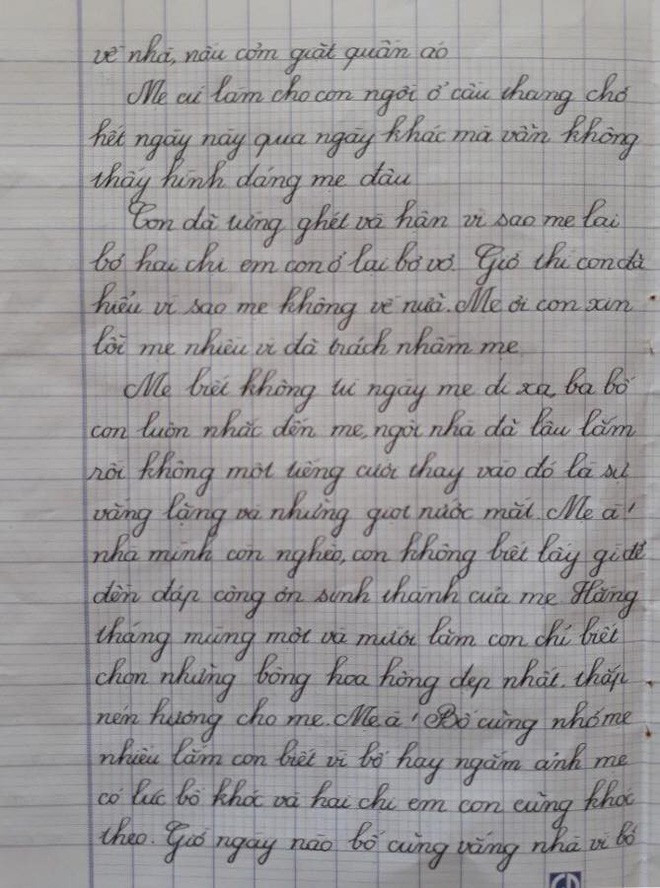 về nhà, nấu cơm giặt quần áo
Mẹ cứ làm cho con ngồi ở cầu thang chờ
hết ngày này qua ngày khác mà vẫn không
thấy hình dáng mẹ đâu
Con đã từng ghét và hận vì sao mẹ lại
bỏ hai chị em con ở lại bơ vơ. Giờ thì con đã
hiểu vì sao mẹ không về nữa. Mẹ ơi con xin
lỗi mẹ nhiều vì đã trách nhầm mẹ
Mẹ biết không từ ngày mẹ đi xa, ba bố
con luôn nhắc đến mẹ, ngôi nhà đã lâu lắm
rồi không một tiếng cười thay vào đó là sự
vắng lặng và những giọt nước mắt. Mẹ à!
nhà mình còn nghèo, con không biết lấy gì để
đền đáp công ơn sinh thành của mẹ. Hàng
tháng mùng một và mười lăm con chỉ biết
chọn những bông hoa hồng đẹp nhất. thắp
nén hương cho mẹ. Mẹ à! Bố cũng nhớ mẹ
nhiều lắm con biết vì bố hay ngắm ảnh mẹ
có lúc bố khóc và hai chị em con cũng khóc
theo. Giờ ngày nào bố cũng vắng nhà vì bố